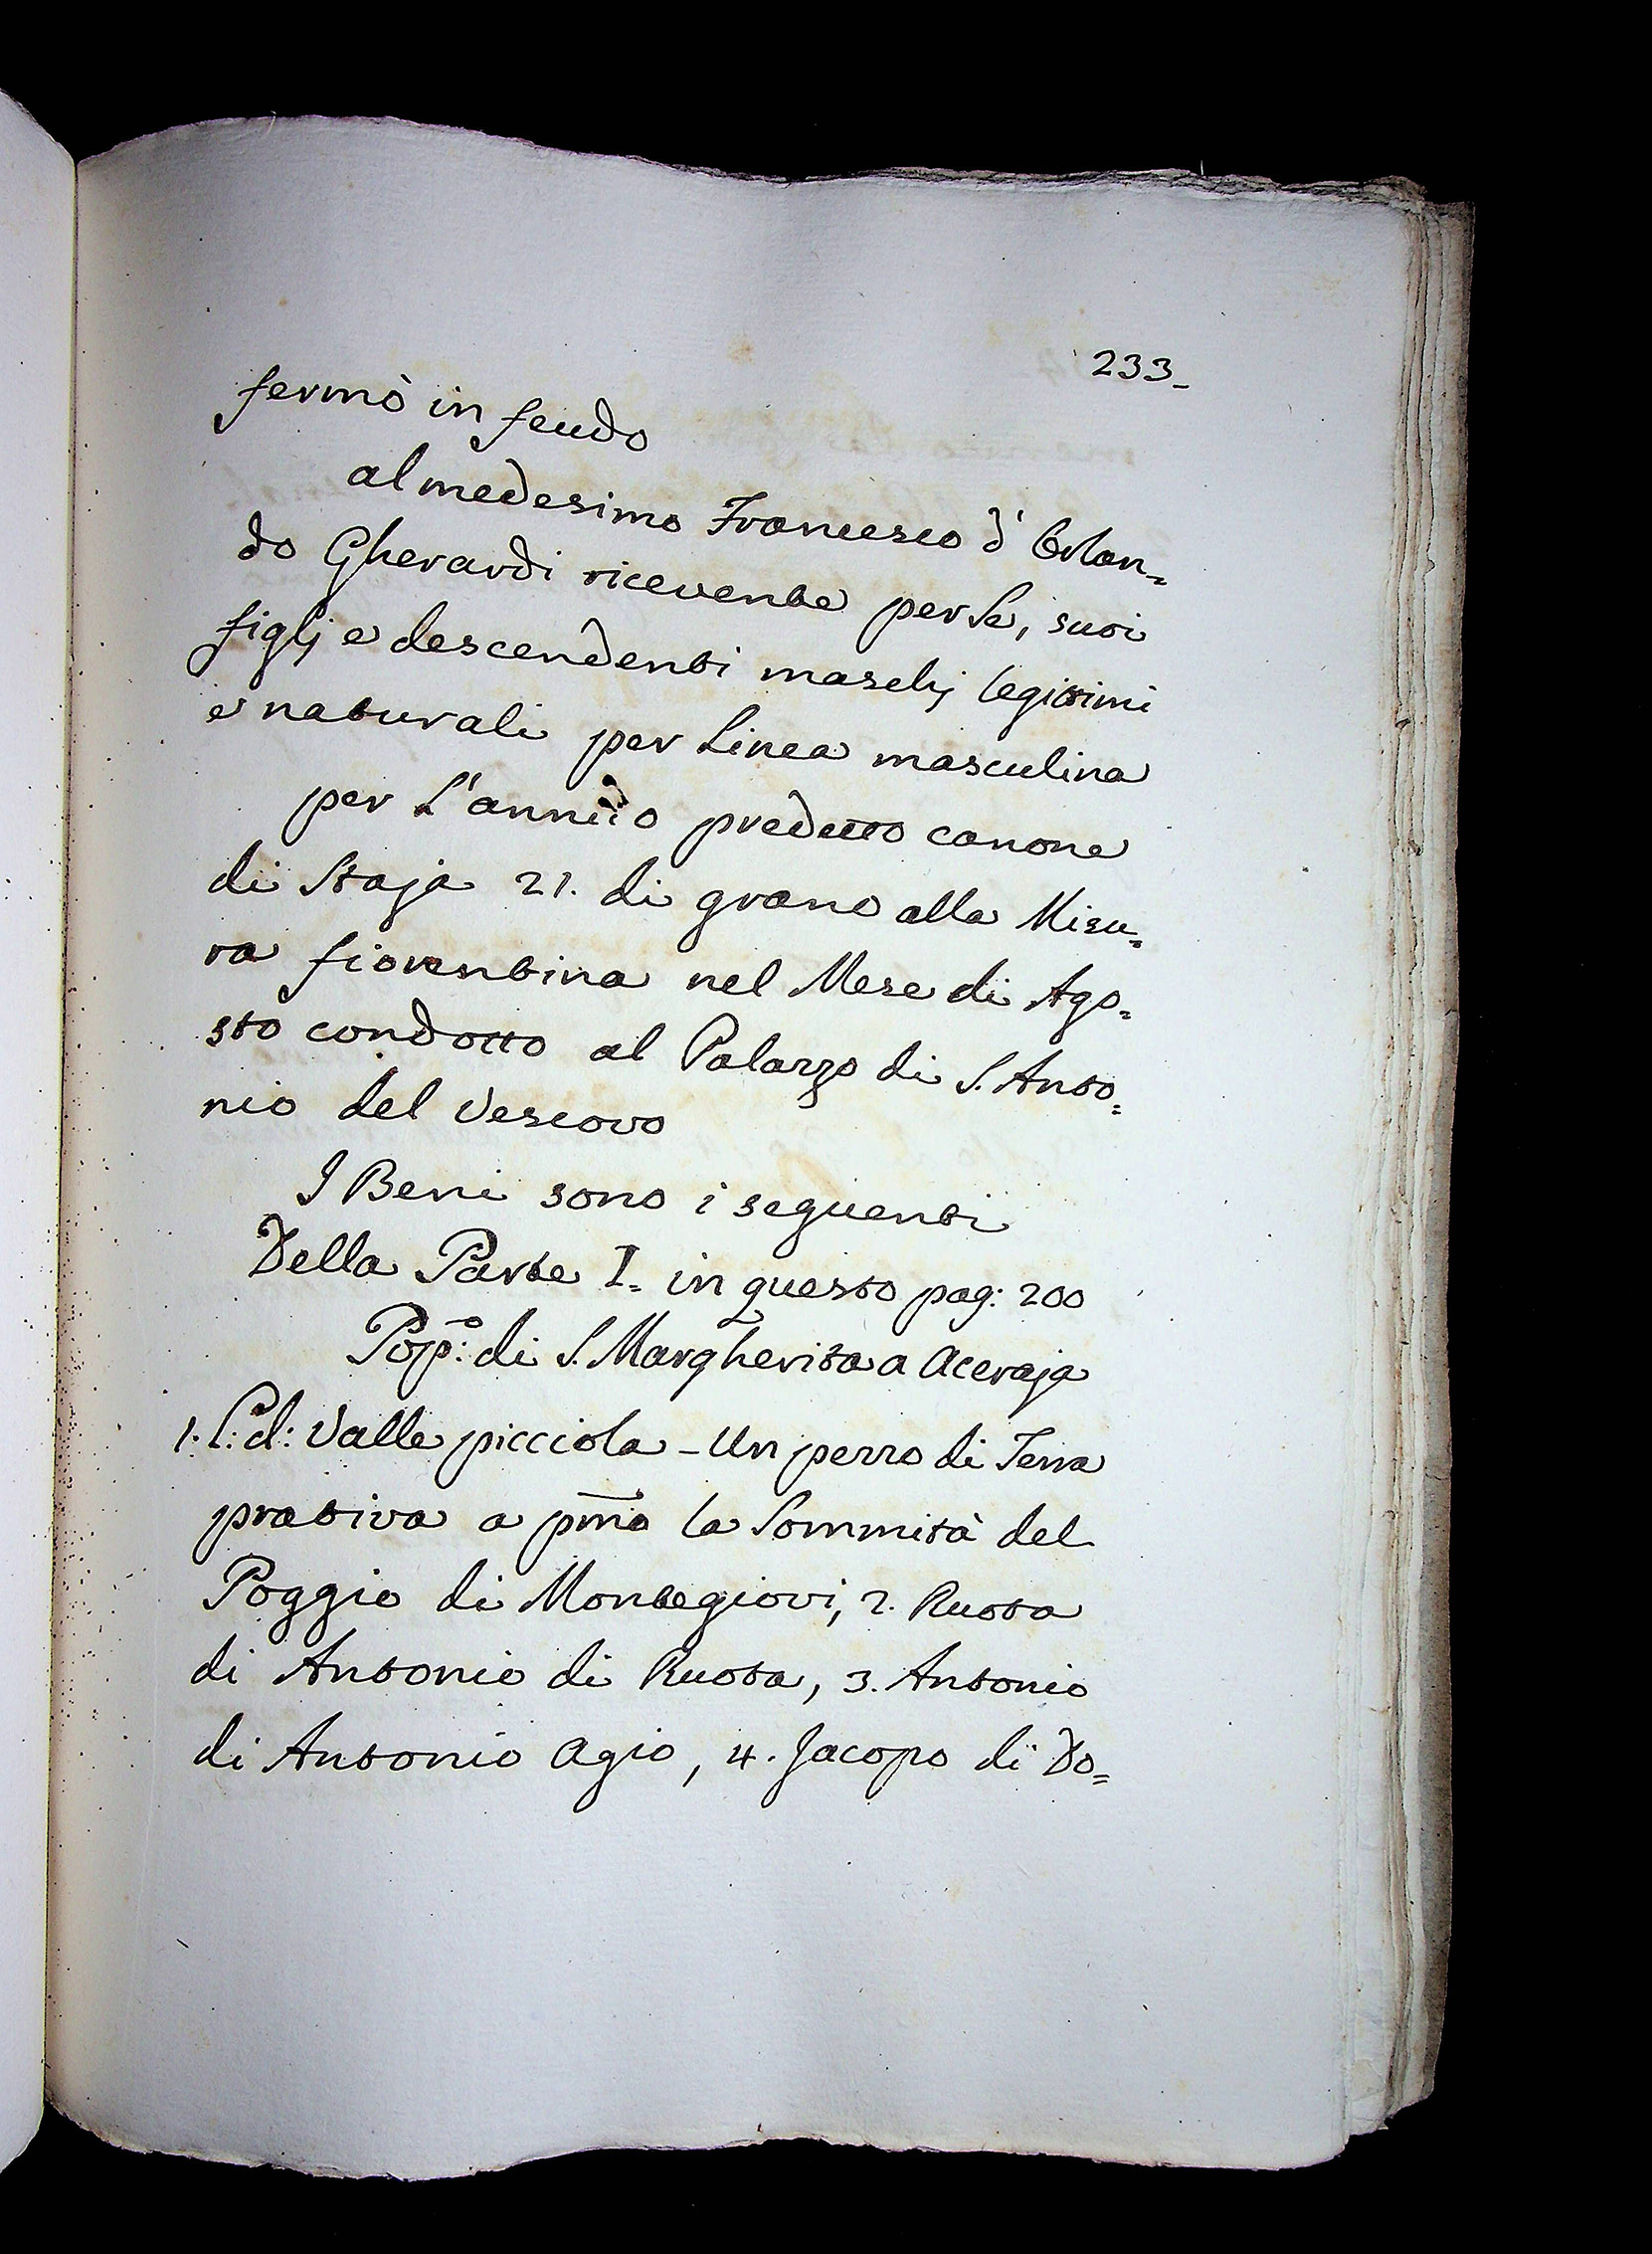 233_
fermò in feudo
al medesimo Francesco d'Orlan=
do Gherardi ricevente per Se, suoi
figlj e descendenti maschj legitimi
e naturali per Linea masculina
per L'annuo predetto canone
di Staja 21. di grano alla Misu=
ra fiorentina nel Mese di Ago=
sto condotto al Palazzo di S. Anto=
nio del Vescovo
I Beni sono i seguenti
Della Parte I. in questo pag: 200
Pop.º: di S. Margherita a Aceraja
1. L: d: Valle picciola - Un pezzo di Terra
prativa a pma la Sommità del
Poggio di Montegiovi, 2. Ruosa
di Antonio di Ruosa, 3. Antonio
di Antonio Agio, 4. Jacopo di Do=